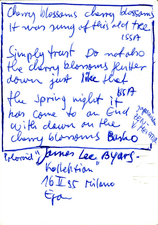 Cherry blossoms cherry blossoms
it was sung of this old tree
ISSA
Simply trust Do not also
the cherry blossoms flutter
down just like that
ISSA
the spring night it
has come to an End
with dawn on the
cherry blossoms Basho
James Lee Byars
Kollektion
16 V 95 Milano